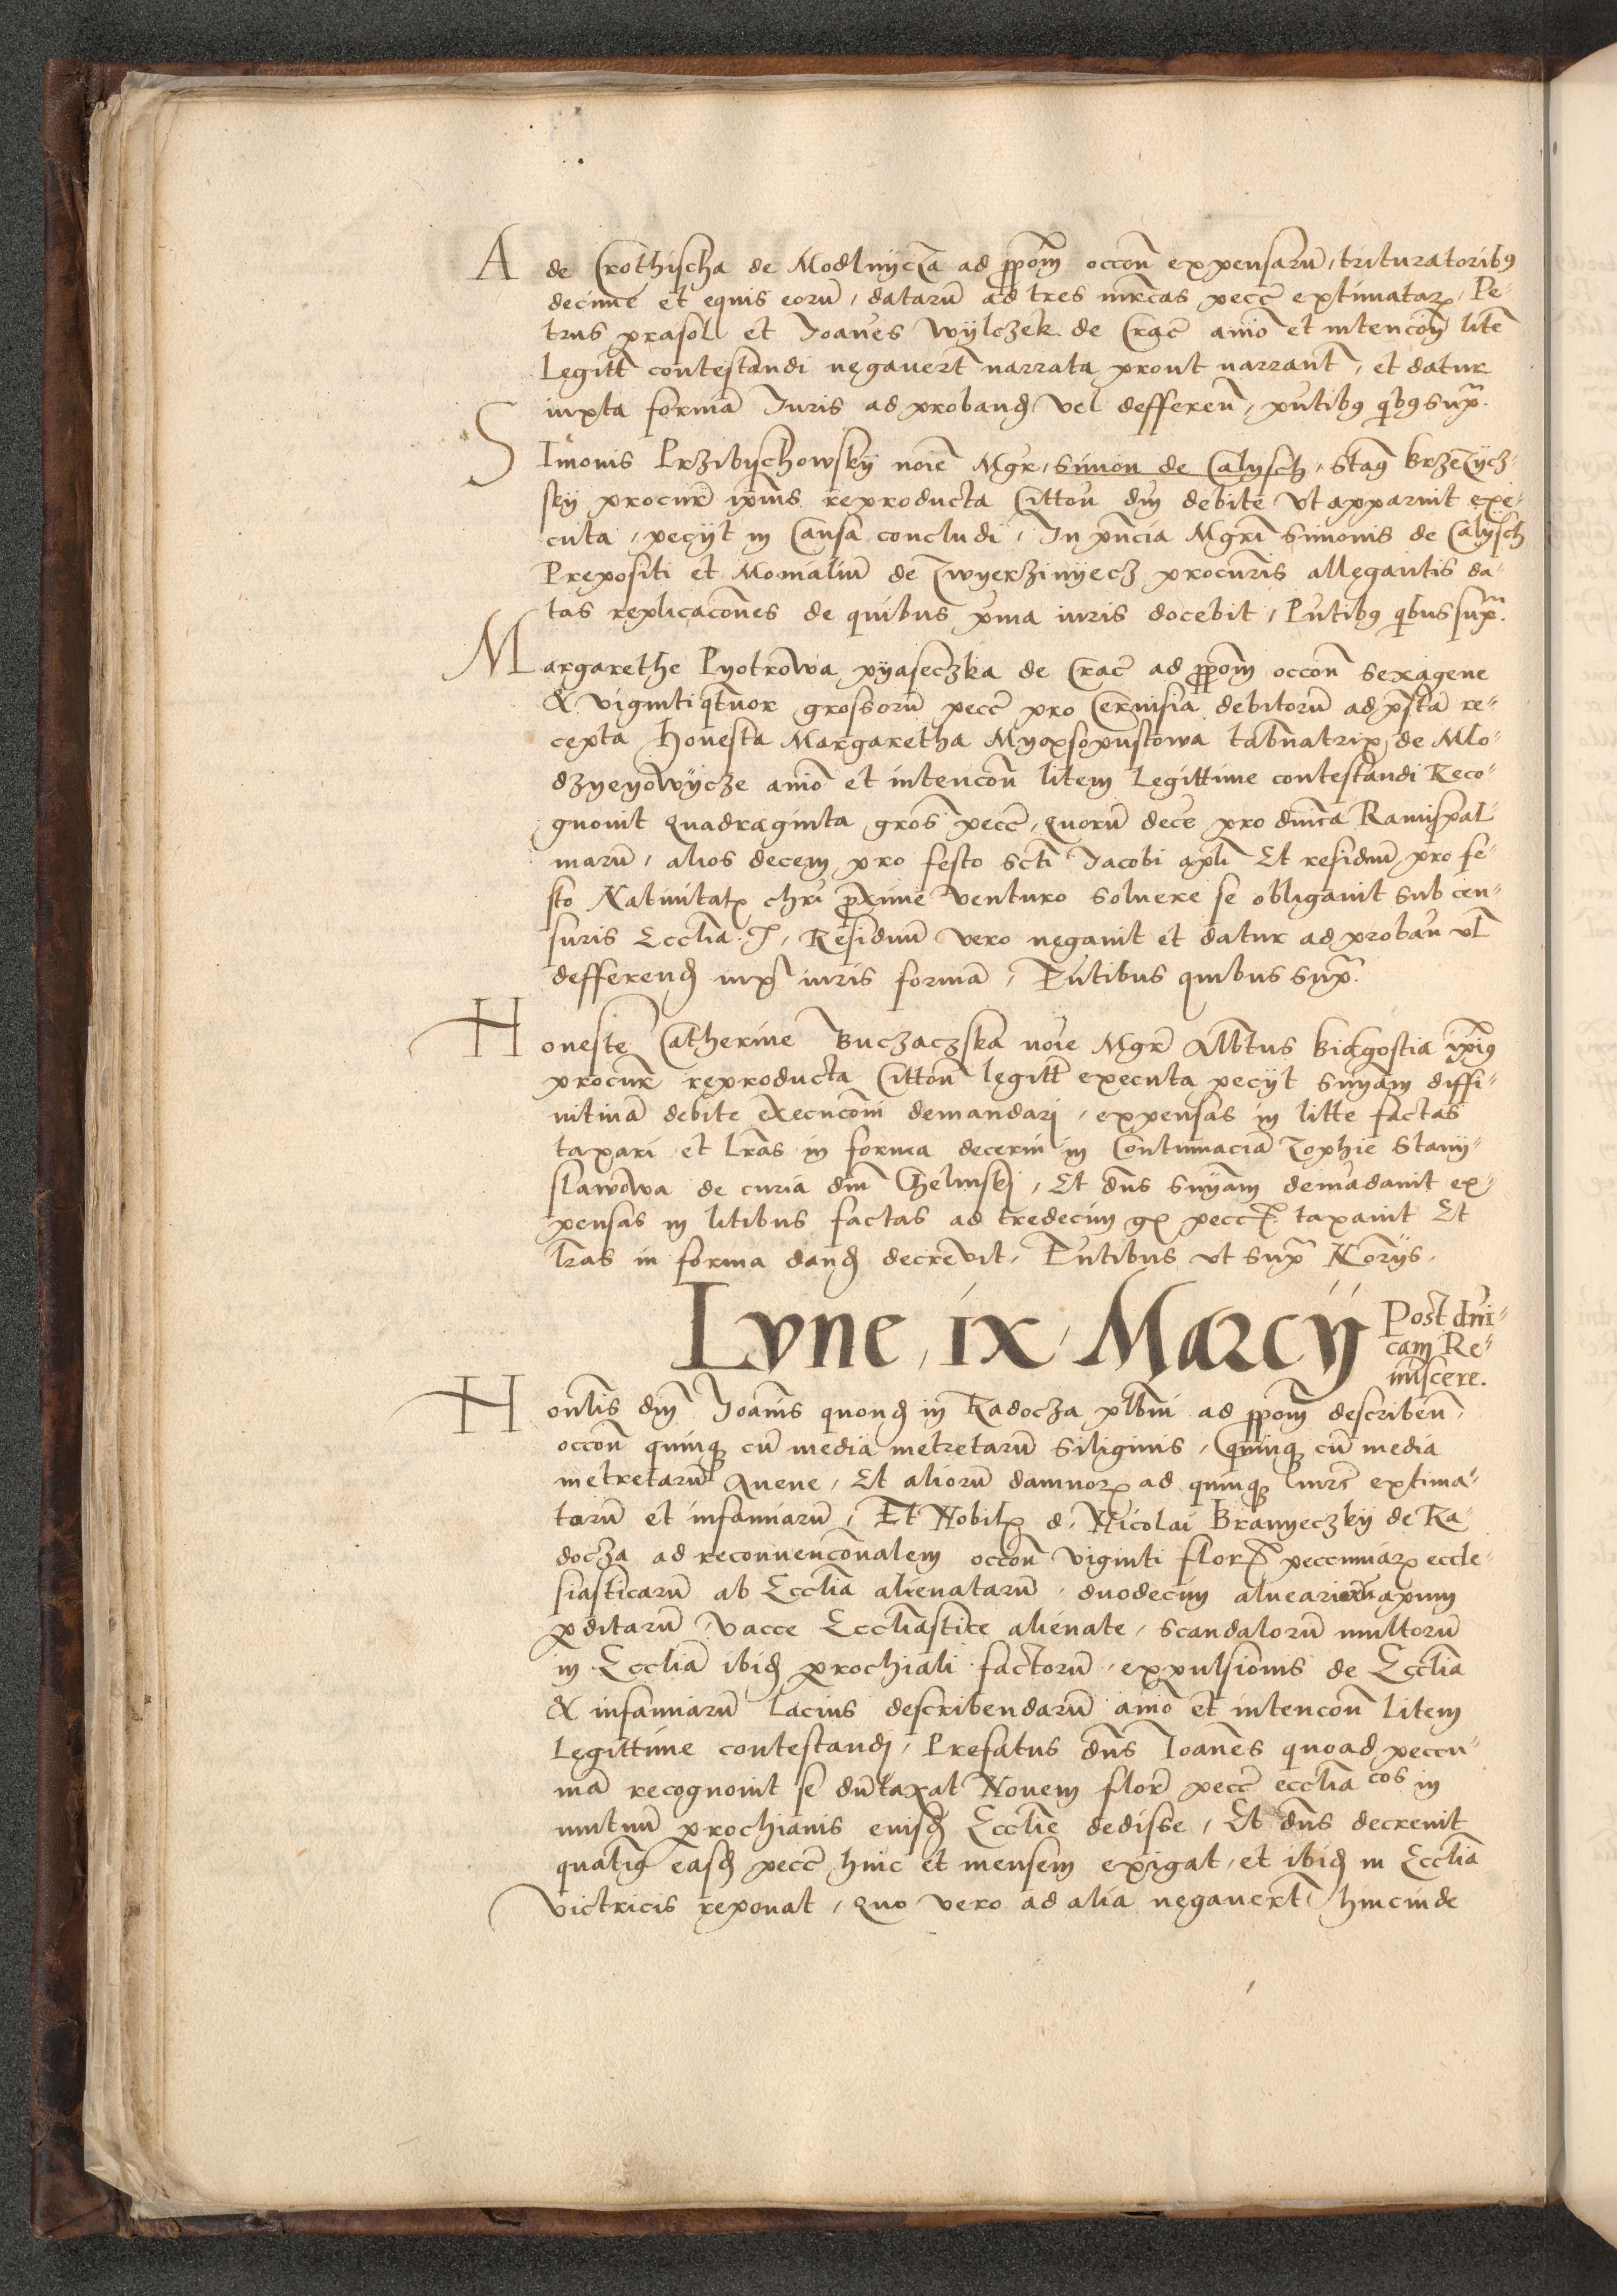 Ade Crothischa de Modlnycza ad ppom̄ occoñ expensarū, trituratoribꝫ
decime et equis eorū, datarū ad tres mrcas pecc̄ extimatarꝝ, Pe-
trus prasoll et Joañes Wylczek de Crac̄ aīo et intencoñ litē
Legitt̄ contestandi negauerūt narrata prout narrant̄, et datur
iuxta formā Juris ad proband̄ vel defferen̄, pñtibꝫ qbꝫ supͣ.
SImonis Przibischowsky noīe Mgr, Simon de Calysch, stanꝫ Brzezycz-
sky procur̄ ipīus reproducta Cittoñ dñi debite vt apparuit exe-
cuta, pecyt in Causa concludi, In pñcia Mgr̄i Simonis de Calysch
Prepositi et Monialiū de Zwyerzinyecz procur̄is allegantis da-
tas replicacōnes de quibus pͥma iuris docebit, Pñtibꝫ qbus supͣ.
Margarethe Pyotrowa pyaseczka de Crac̄ ad ppom̄ occoñ sexagene
& viginti qtuor grossorū pecc̄ pro Ceruisia debitorū ad pn̄tā re-
cepta Honesta Margaretha Myaxsopustowa tabnatrix de Mlo-
dzyeyowycze aīo et intencoñ litem Legittime contestandi Reco-
gnouit quadraginta gros̄ pecc̄, quorū decē pro dnica Ramispal-
marū, alios decem pro festo scti Jacobi apli Et residuū pro fe-
sto Natiuitatꝭ chri proxime venturo soluere se obligauit sub cen-
suris Ecclīa. Residuū vero negauit et datur ad proban̄ vl̄
defferend̄ iuxͣ iuris formā, Pñtibus quibus supͣ.
Honeste Catherine Buczaczska noīe Mgr̄ Albtus Bidgostia ipīꝫ
procur̄ reproducta Cittoñ legitt̄ executa pecyt snīam diffi-
nitiuā debite execucōni demandari, expensas in litte factas
taxari et lr̄as in forma decerni in Contumaciā Zophie Stany-
slawowa de curia dñi Chelmskj, Et dñs snīam demādauit ex-
pensas in litibus factas ad tredecim gꝭ pecc̄ taxauit Et
lr̄as in forma dand̄ decreuit, Pñtibus vt supͣ Notr̄ijs.
Lvne, ix, Marcij Post dn̄i-
cam Re-
miscere.
Honlis dñi Joan̄is quond̄ in Radocza plbni ad ppom̄ describen̄,
occoñ quinqꝫ cū media metretarū siliginis, quinqꝫ cū media
metretarū Auene, Et aliorū damnorꝝ ad quinqꝫ mrc̄ extima-
tarū et infamiarū, Et Nobilꝭ d. Nicolai Branyeczky de Ra-
docza ad reconuencōnalem occoñ viginti flor̄ peccuniarꝝ eccle-
siasticarū ab Ecclīa alienatarū, duodecim aluearioru apum
pditarū, vacce Eccliastice alienate, scandalorū multorū
in Ecclīa ibid̄ prochiali factorū, expulsionis de Ecclīa
& infamiarū lacius describendarū aīo et intencoñ litem
Legittime contestandj, Prefatus dñs Joan̄es quoad peccu-
niā recognouit se dūtaxat Nouem flor̄ pecc̄ ecclīa cos in
mutuū prochianis eiusd̄ Ecclie dedisse, Et dñs decreuit
quatinꝫ easd̄ pecc̄ hinc et mensem exigat, et ibid̄ in Ecclīa
victricis reponat, quo vero ad alia negauerūt hincinde